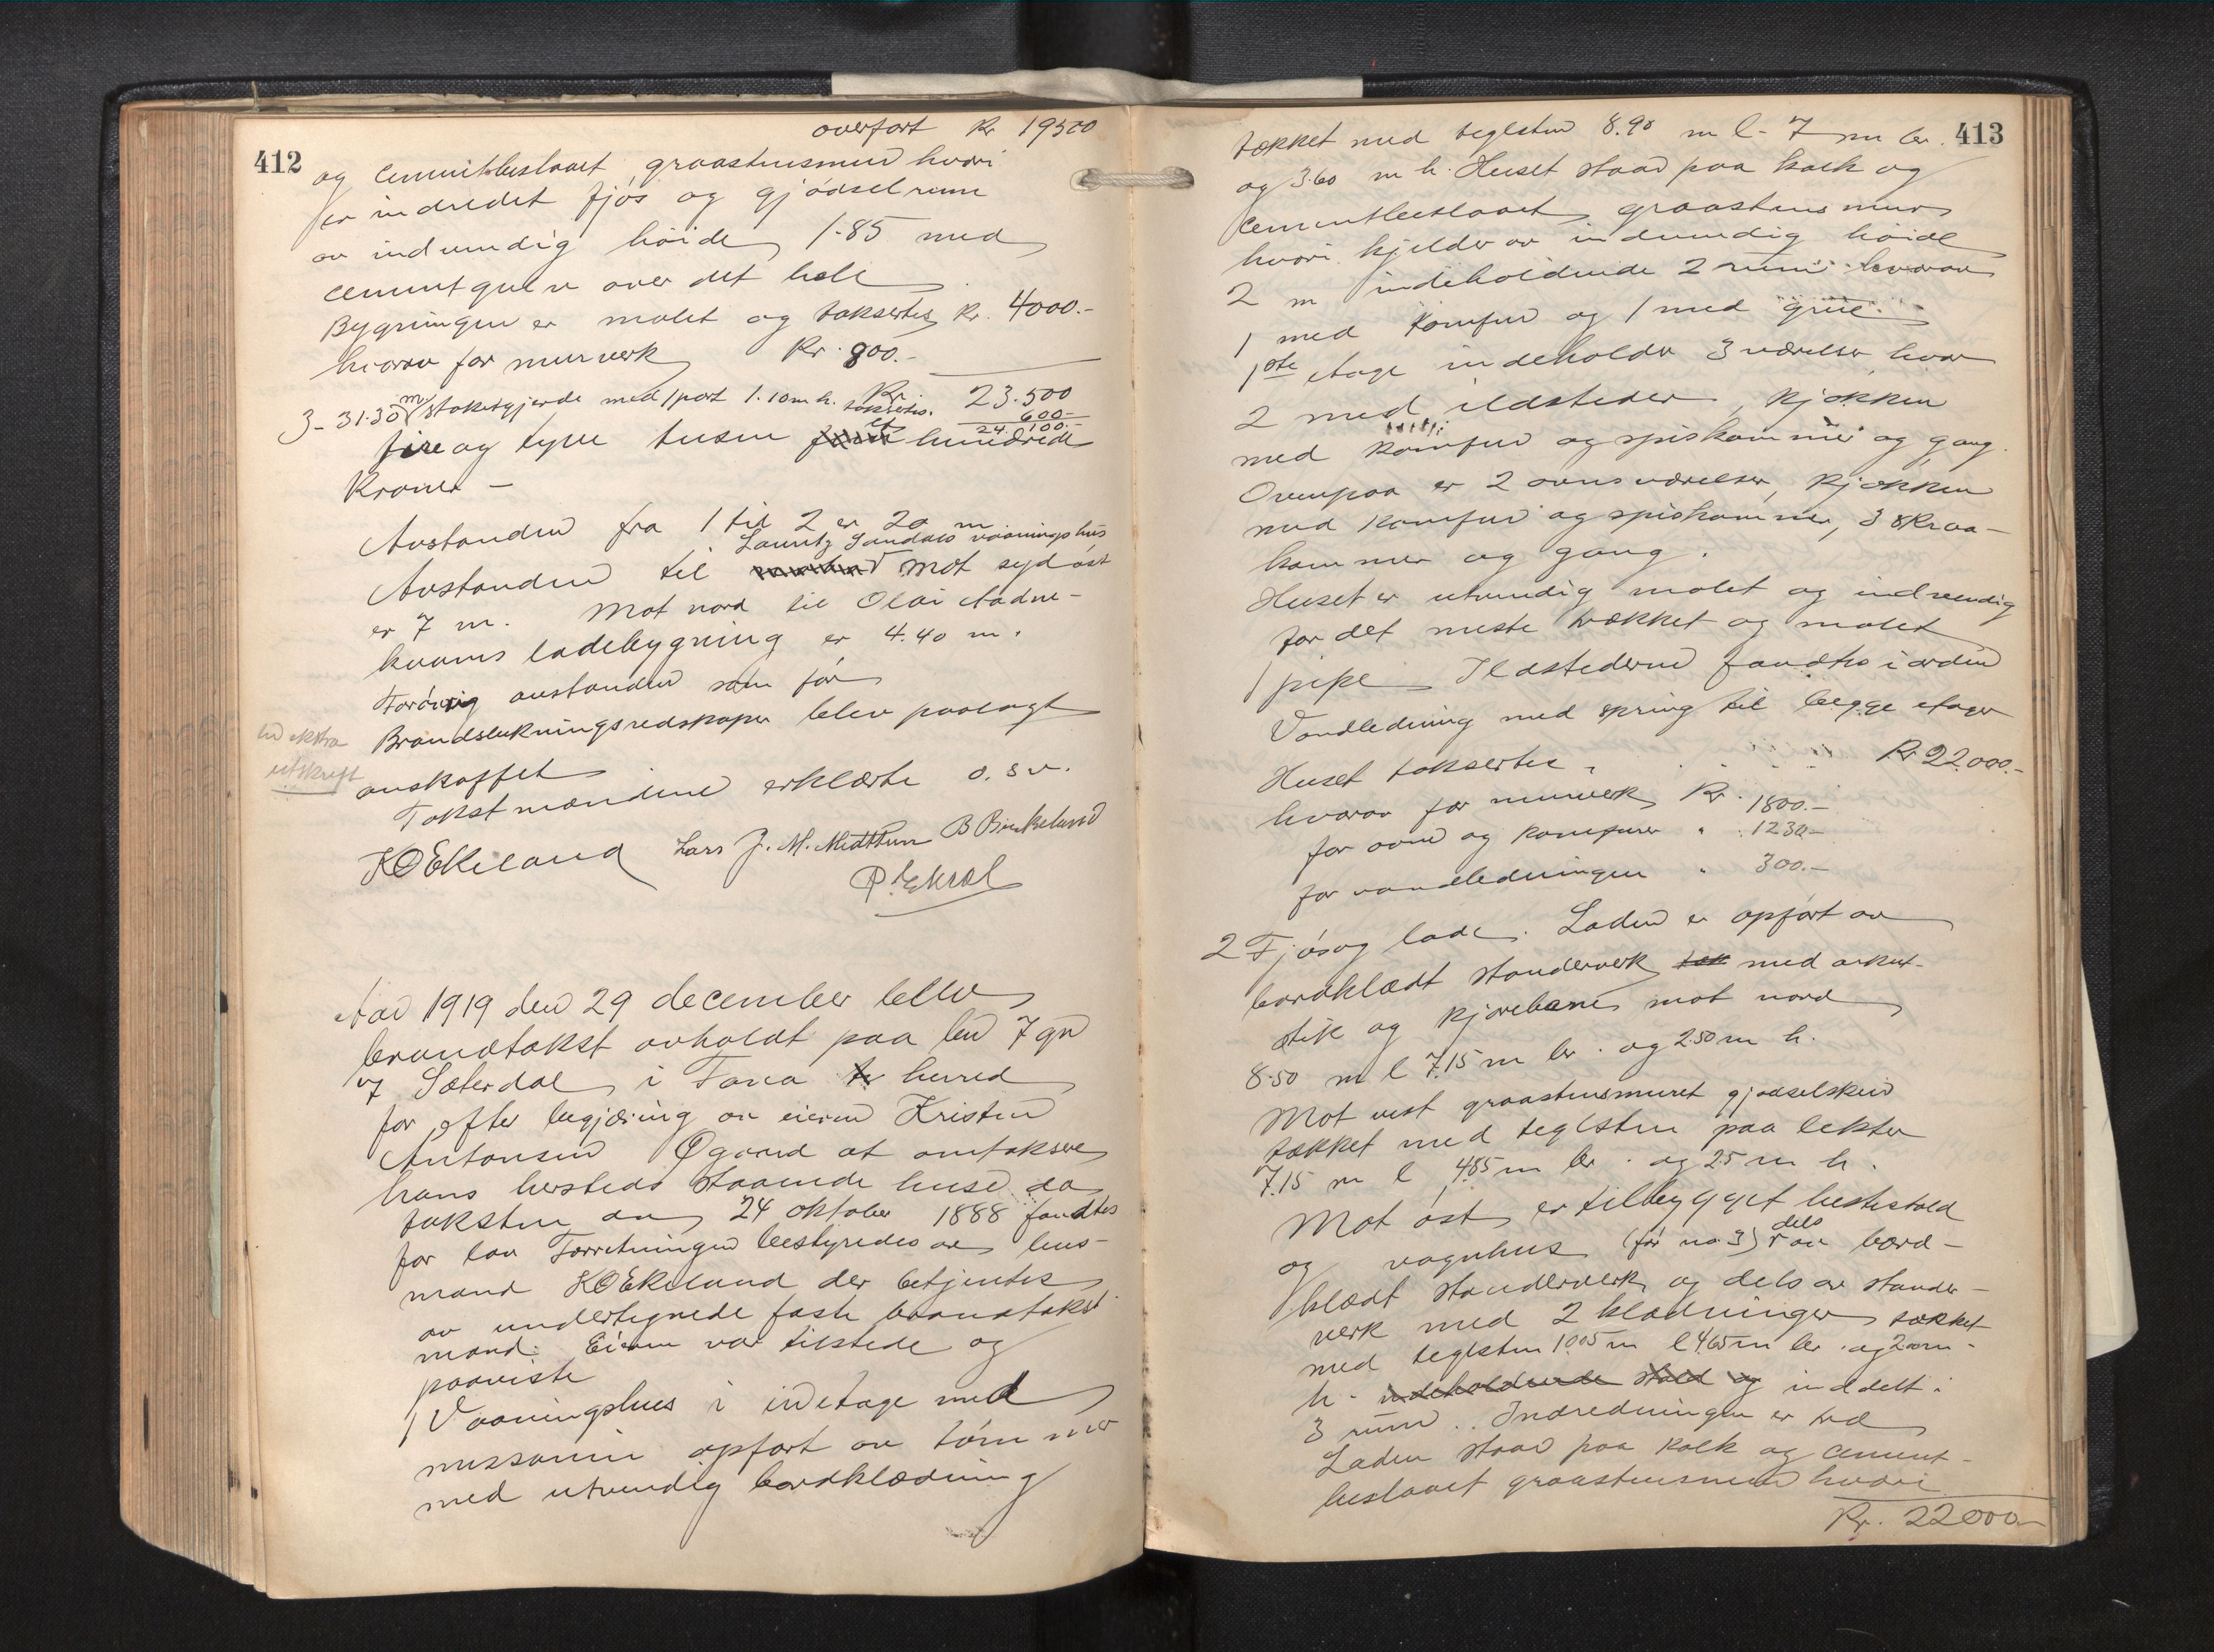 412
overført Kr 19500
og cementbeslaaet graastensmur hvori
er indredet fjøs og gjødselrum
av indvendig høide 1.85 med
cementgulv over det hele
Bygningen er malet og taksertes Kr. 4000.-
hvorav for murverk Kr. 900.-
3 - 31.30 m stakitgjerde med 1 port 1.10 m h. taksertes. Kr. 23.500
600-
24.100.-
fire og tyve tusen et hundrede
Kroner -
Avstanden fra 1 til 2 er 20 m
Lauritz Sandals vaaningshus
Avstanden til mot sydøst
er 7 m. Mot nord til Olai Aadne-
kvams ladebygning er 4.40 m.
Forøvrig avstanden som før
Brandslukningsredskaper blev paalagt
anskaffet
en ekstra
utskrift
Takstmændene erklærte o.s.v.
K O Ekeland Lars J. M. Midttun B Birkeland
P. Ekral
Aar 1919 den 29 december blev
brandtakst avholdt paa bn 7 gn
7 Sæterdal i Fana herred
for efter begjæring av eieren Kristen
Antonsen Øgaard at omtaksere
hans hersteds staaende huse da
taksten av 24 oktober 1888 fandtes
for lav Forretningen bestyredes av lens-
mand K O Ekeland der betjentes
av undertegnede faste brandtakst
mænd. Eieren var tilstede og
paaviste
1 Vaaningshus i en etage med
messanin opført av tømmer
med utvendig bordklædning
413
tækket med teglsten 8.90 m l - 7 m br.
og 3.60 m h. Huset staar paa kalk og
cementbeslaaet graastensmur
hvori kjelder av indvendig høide
2 m indeholdende 2 rum hvorav
1 med komfur og 1 med grue.
1ste etage indeholder 3 værelser, hvor
2 med ildsteder, kjøkken
med komfur og spiskammer og gang.
Ovenpaa er 2 ovnsværelser, kjøkken
med komfur og spiskammer, 3 skraa-
kammer og gang.
Huset er utvendig malet og indvendig
for det meste trækket og malet
1 pipe Ildstederne fandtes i orden
Vandledning med spring til begge etager
Huset taksertes . . . . Kr 22.000.-
hvorav for murverk Kr. 1800.-
for ovne og komfurer " 1230.-
for vandledningen " 300.-
2 Fjøs og lade. Laden er opført av
bordklædt standerverk tæk med arkut-
stik og kjørebane mot nord
8.50 m l 7.15 m br. og 2.50 m h.
Mot vest graastensmuret gjødselskur
tækket med teglsten paa lekter
7.15 m l 4.85 m br. og 25 m h.
Mot øst er tilbygget hestestald
og vognhus (før no 3) dels av bord-
klædt standerverk og dels av stander-
verk med 2 klædninger tækket
med teglsten 10.05 m l 4.65 m br. og 2.00 m.
h. indeholdende stald og inddelt i
3 rum. Indredningen er træ
Laden staar paa kalk og cement-
beslaaet graastensmur hvori
Kr. 22000-